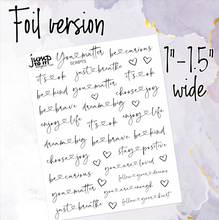 Foil version
You matter be curious
SCRIPTS
it's ok just breathe
be kind you matter
be brave dream big choose joy
enjoy life it's ok enjoy life
dream big be brave be kind
choose joy breathe
be curious stay positive
you matter you are loved
follow your dreams
just breathe you are enough
follow your heart
1"-1.5"
wide